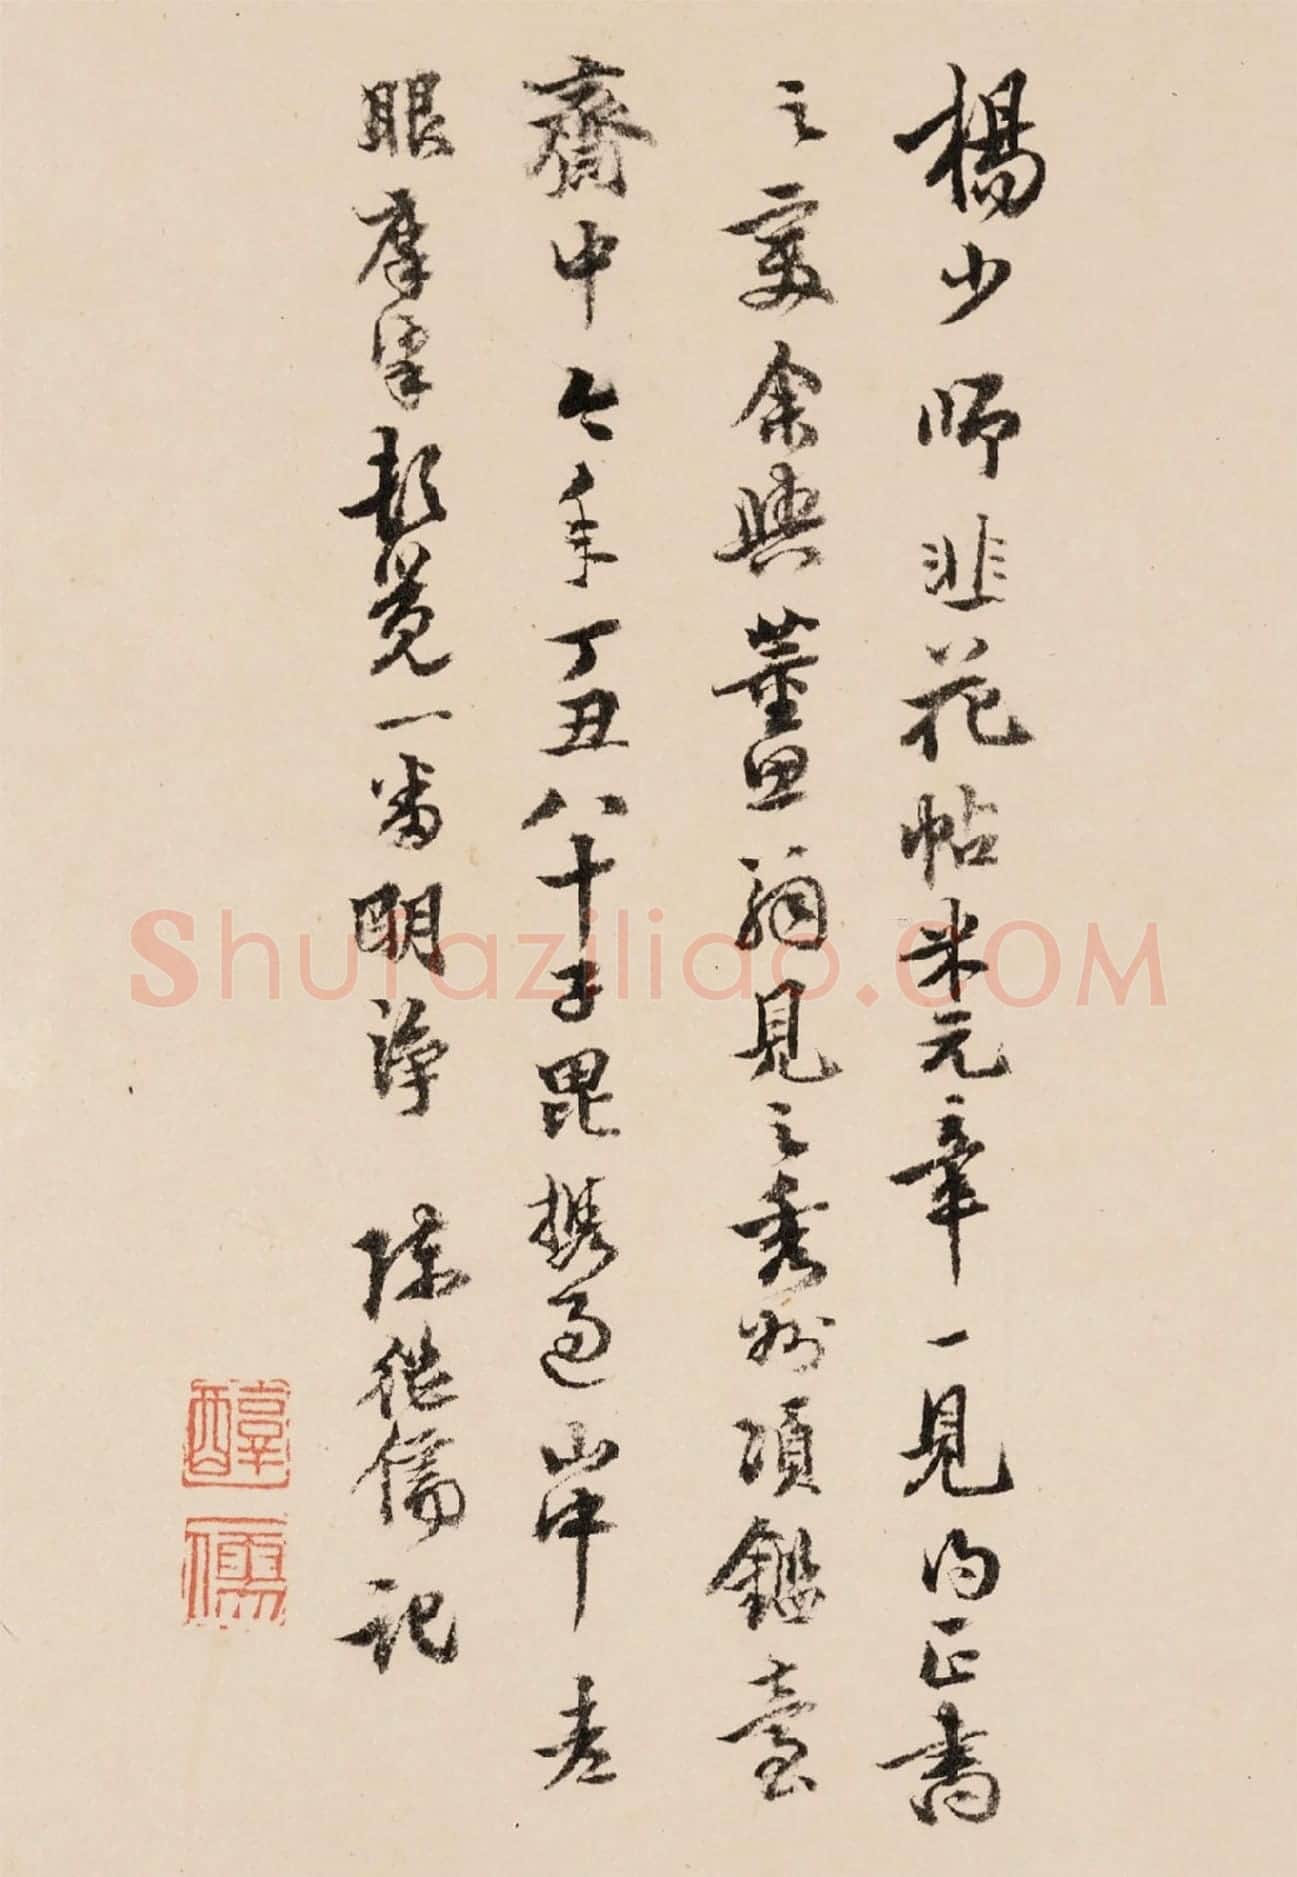 楊少師韭花帖米元章一見為正書
之變余與董思翁見之秀州項鑑臺
齋中今年丁丑八十子毘携過山中老
眼摩挲頓覺一番明淨 陳繼儒記
醇儒
Shufaziliao.COM